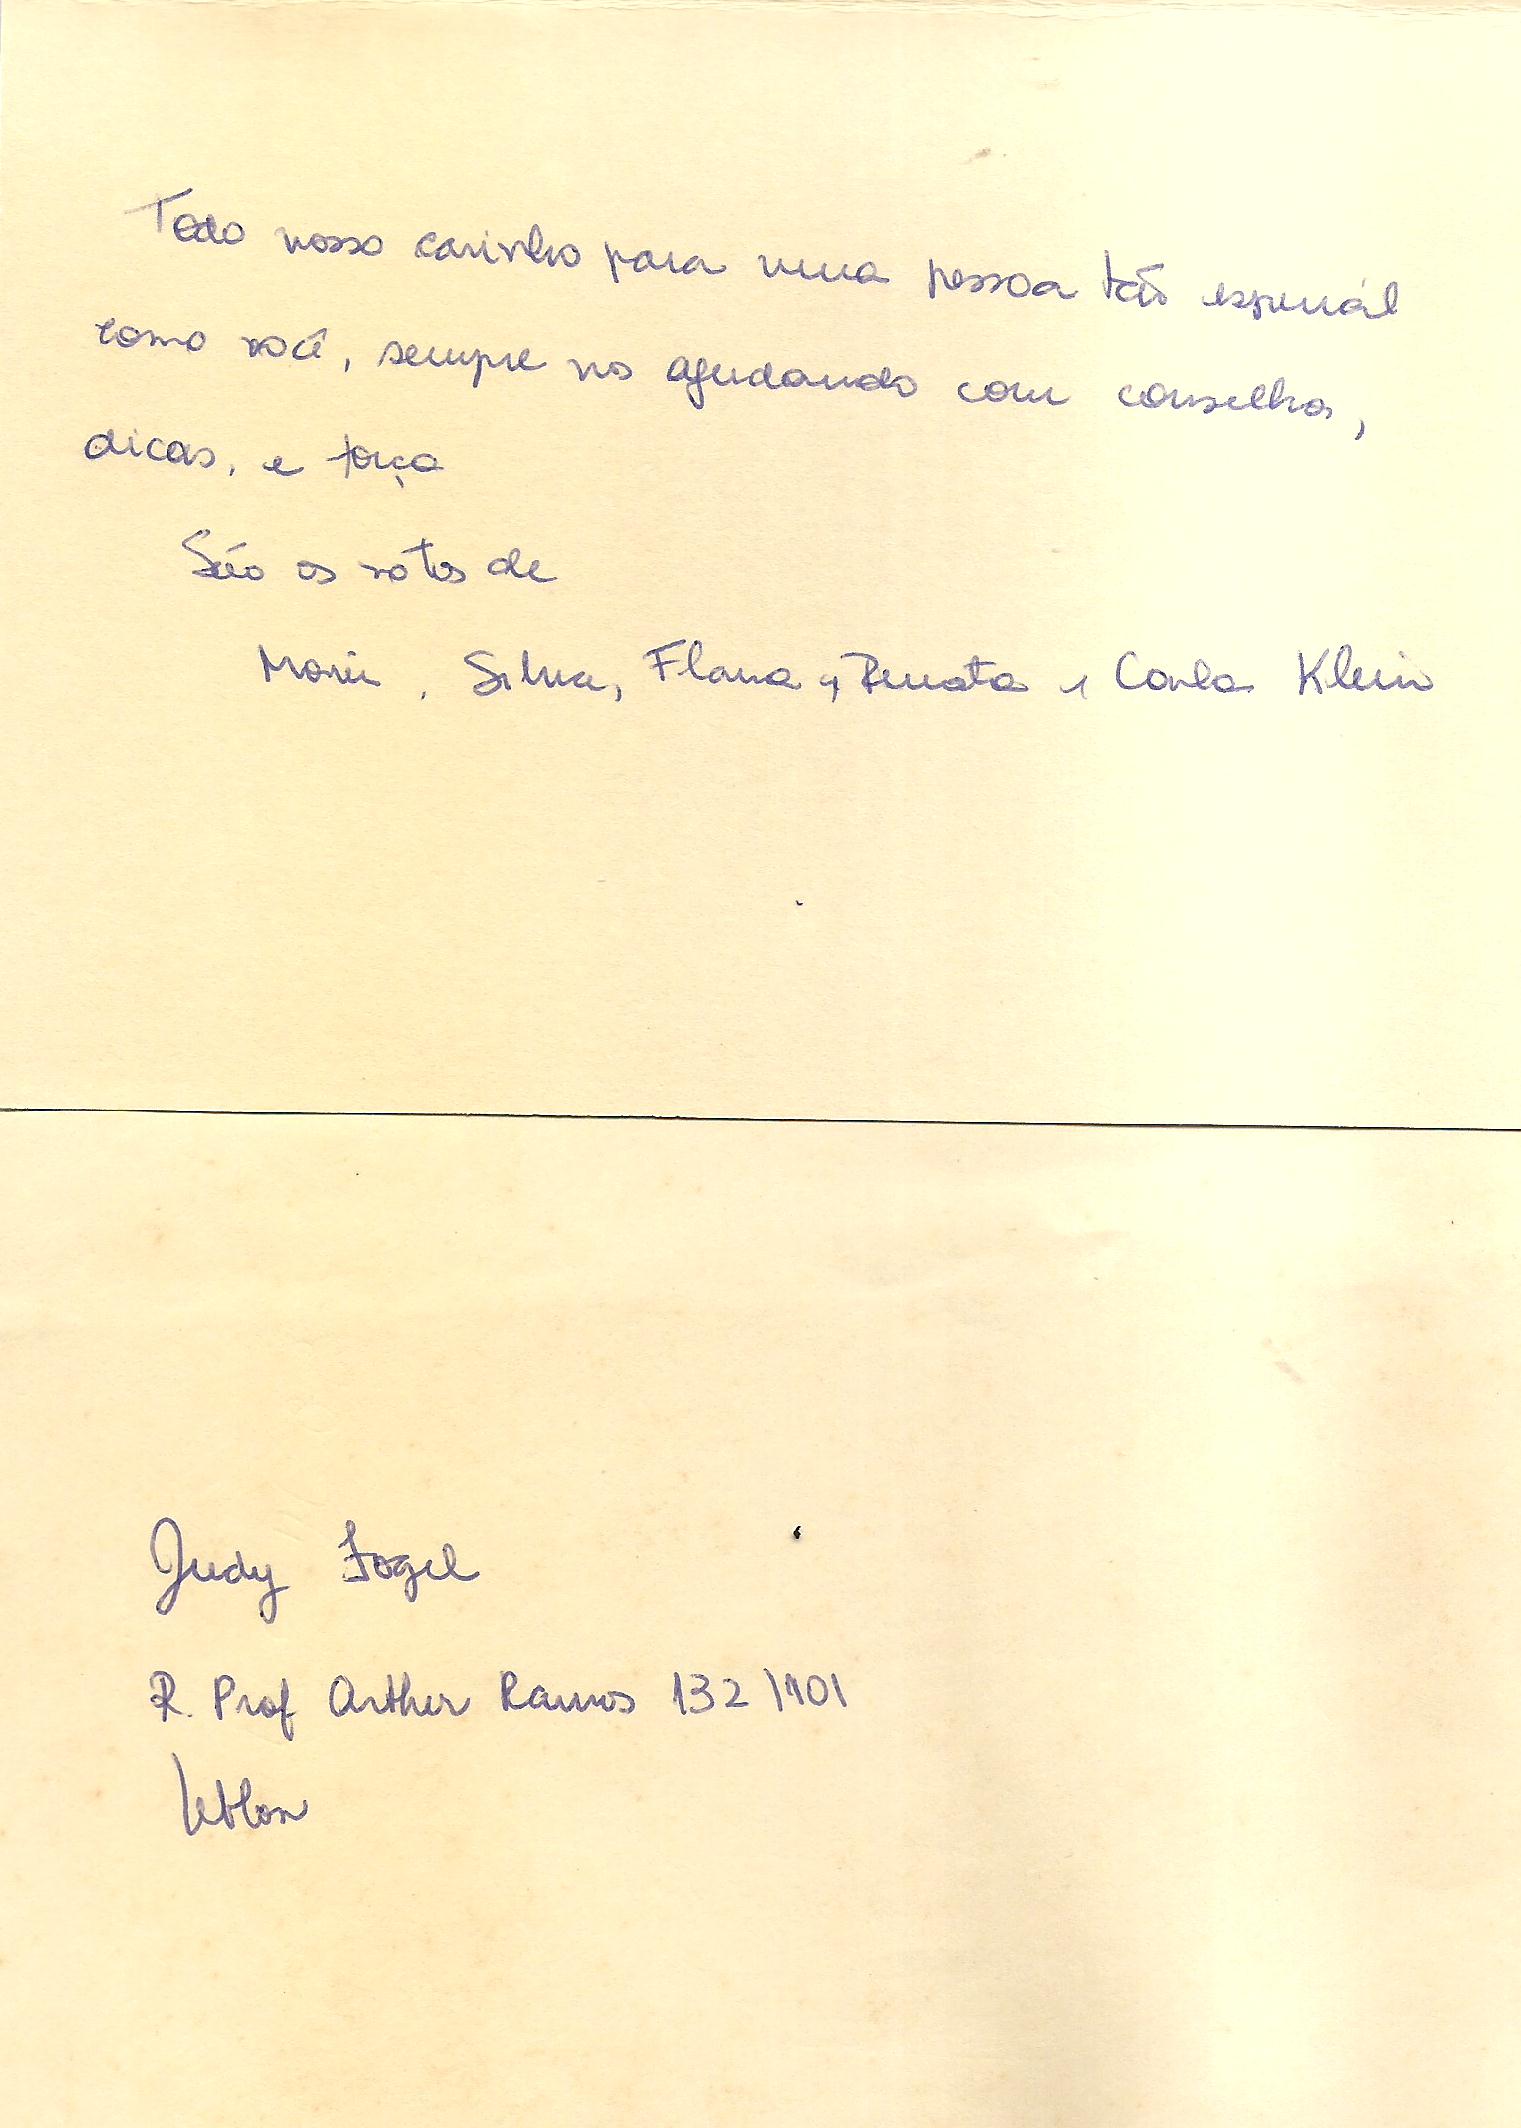 Todo nosso carinho para uma pessoa tão especiál
como você, sempre nos ajudando com conselhos,
dicas, e força
São os votos de
Silvia, Flavia, Renata e Carla Klein
Judy Fogel
R. Prof Arthur Ramos 132 /101
Leblon